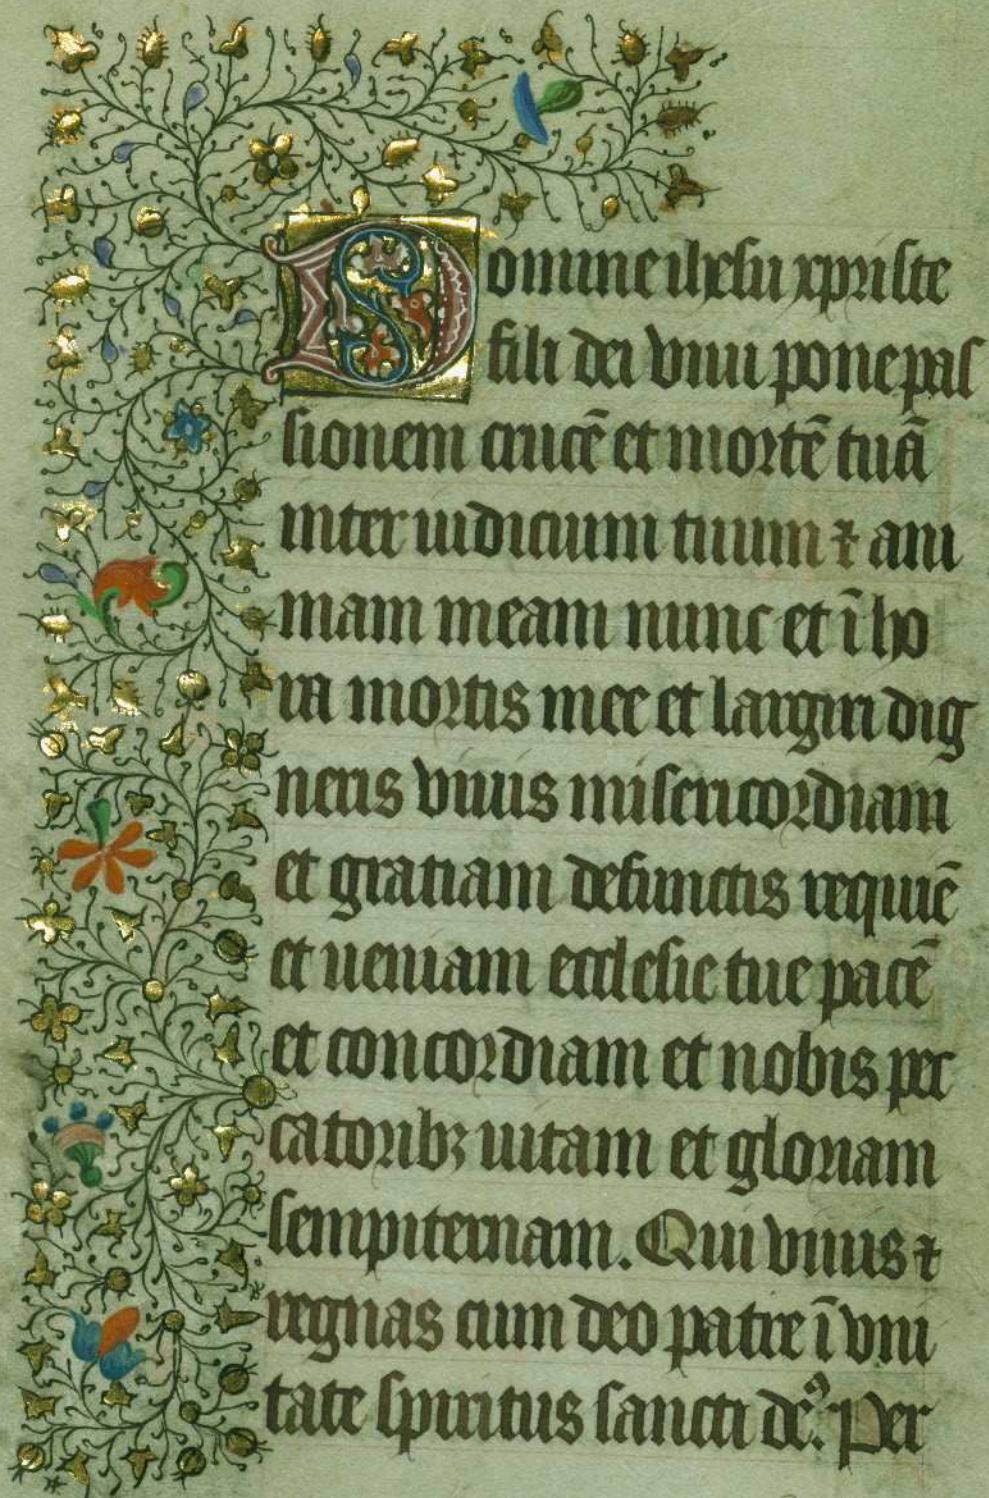 Domine ihesu xpriste
fili dei viui pone pas
sionem crucē et mortē tuā
inter iudicium tuum ⁊ ani
mam meam nunc et ī ho
ra mortis mee et largiri dig
neris viuis misericordiam
et gratiam defunctis requiē
et ueniam ecclesie tue pacē
et concordiam et nobis pec
catoribꝫ uitam et gloriam
sempiternam. Qui viuis ⁊
regnas cum deo patre ī vni
tate spiritus sancti deꝰ. Per